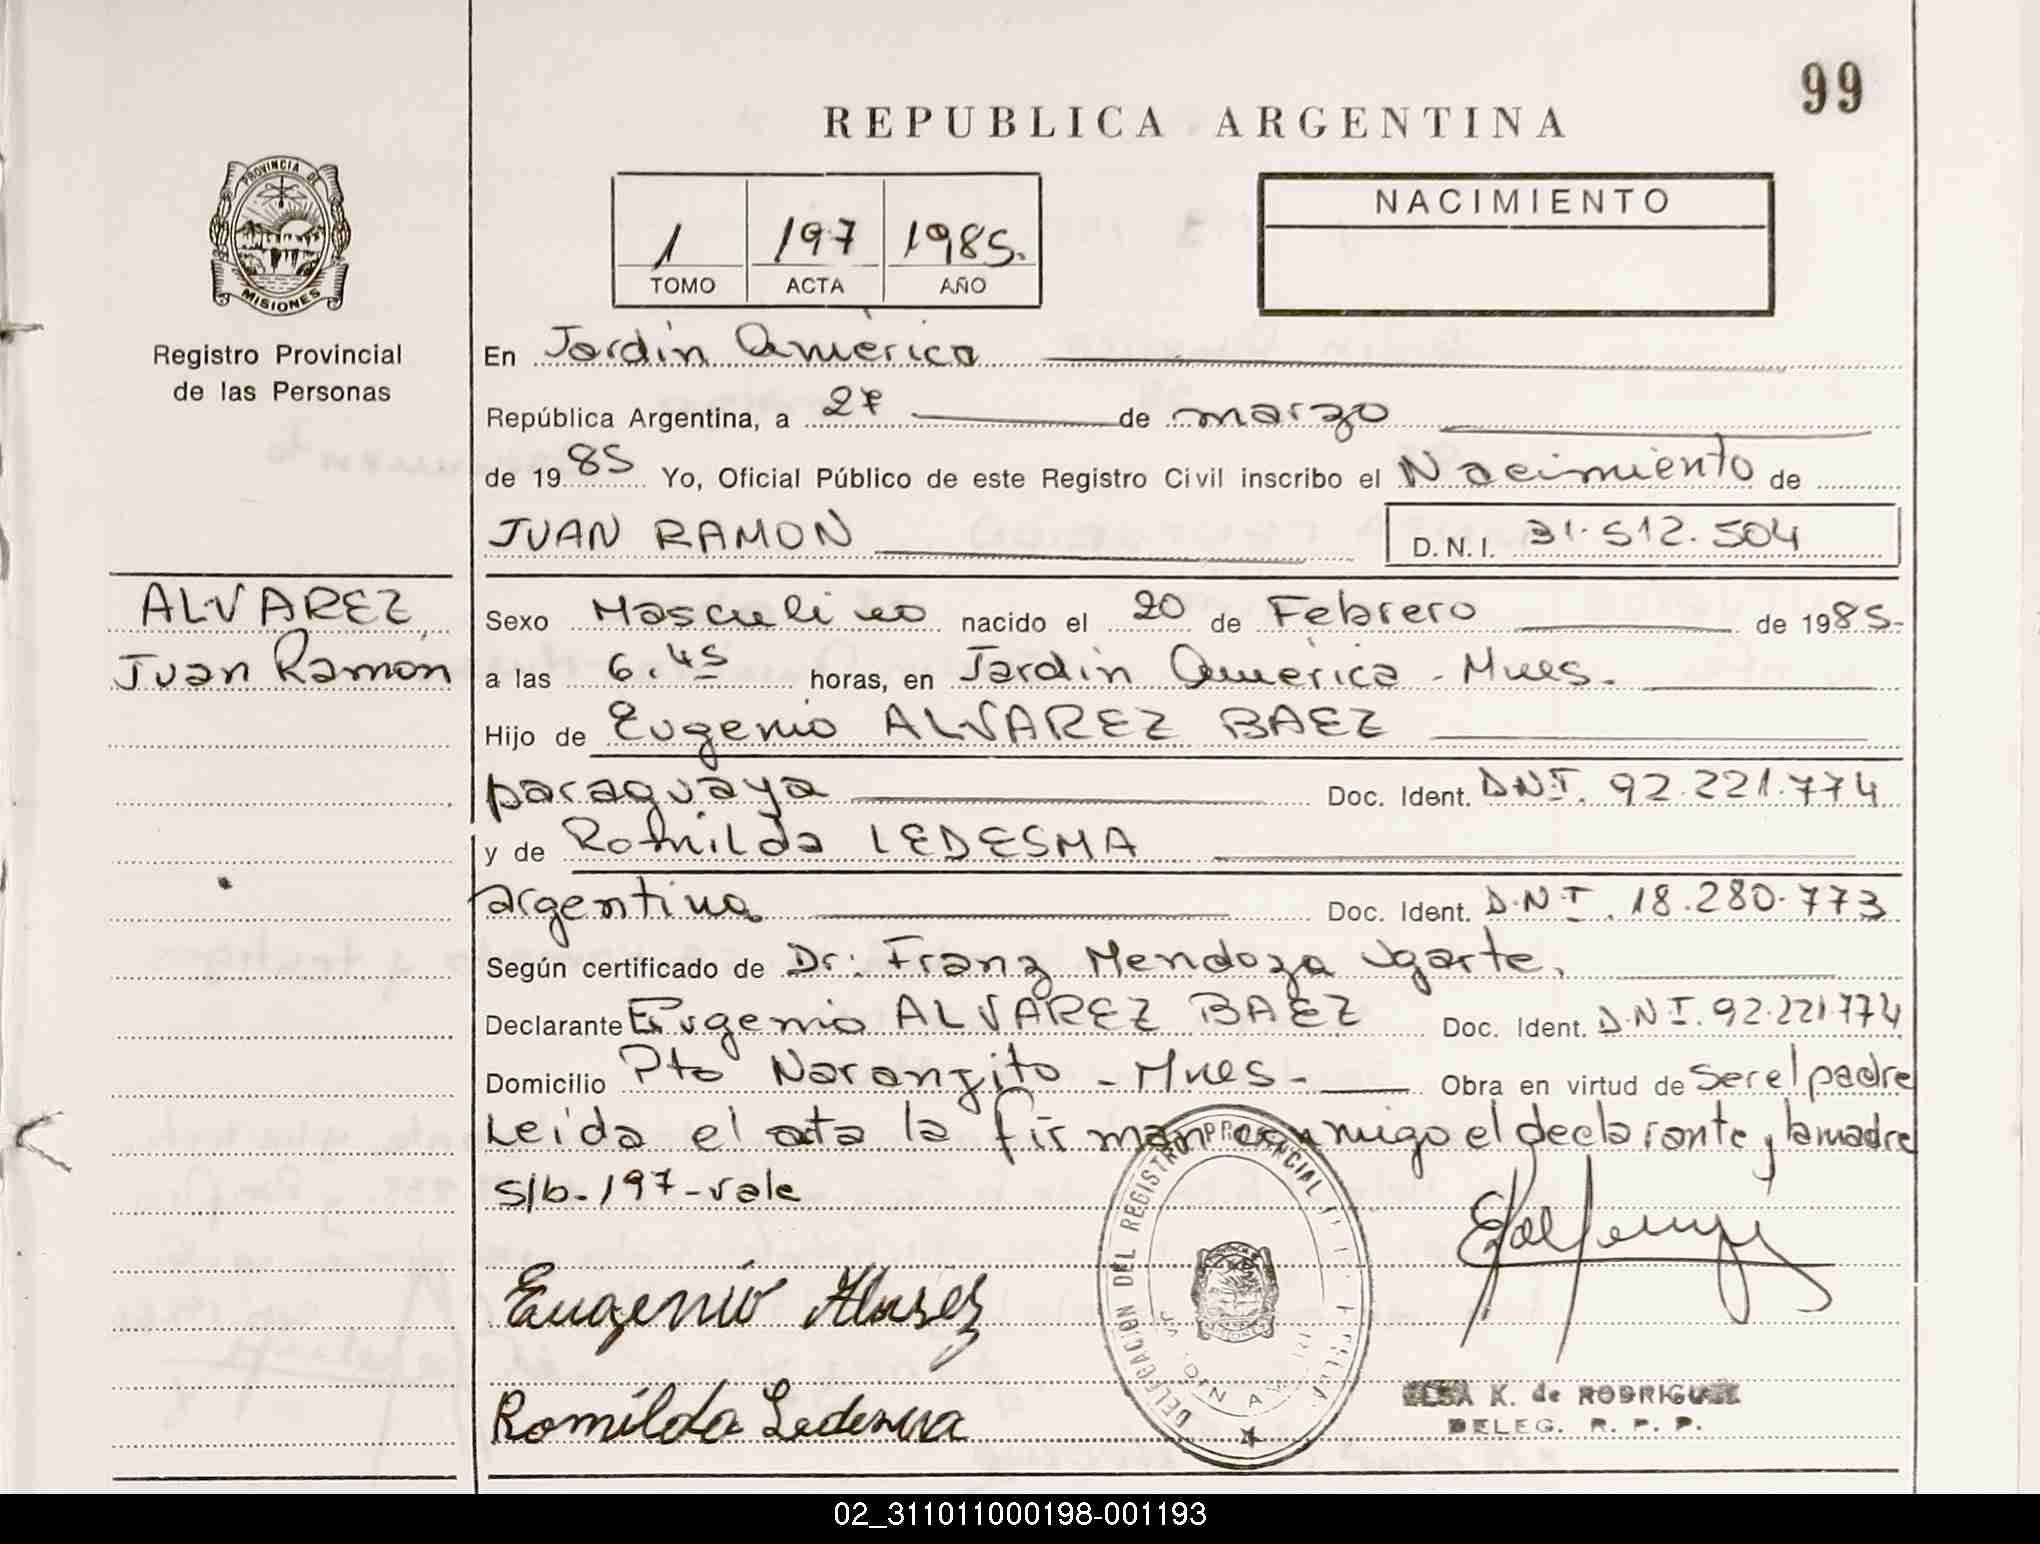 99
REPUBLICA ARGENTINA
PROVINCIA DE
MISIONES
Registro Provincial
de las Personas
1 197 1985.
TOMO ACTA AÑO
NACIMIENTO
En Jardín América
República Argentina, a 27 de marzo
de 1985 Yo, Oficial Público de este Registro Civil inscribo el Nacimiento de
JUAN RAMON D.N.I. 31.512.504
ALVAREZ,
Juan Ramon
Sexo Masculino nacido el 20 de Febrero de 1985-
a las 6.45 horas, en Jardín América - Mnes.
Hijo de Eugenio ALVAREZ BAEZ
paraguaya Doc. Ident. D.N.I. 92.221.774
y de Romilda LEDESMA
argentina Doc. Ident. D.N.I. 18.280.773
Según certificado de Dr. Franz Mendoza Ugarte.
Declarante Eugenio ALVAREZ BAEZ Doc. Ident. D.N.I. 92.221.774
Domicilio Pto Naranzito - Mnes- Obra en virtud de ser el padre
Leida el ata la firman conmigo el declarante y la madre
s/b-197-vale
DELEGACION DEL REGISTRO PROVINCIAL
MISIONES
Eugenio Alvarez
Romilda Ledesma
ELSA K. de RODRIGUEZ
DELEG. R. P. P.
02_311011000198-001193